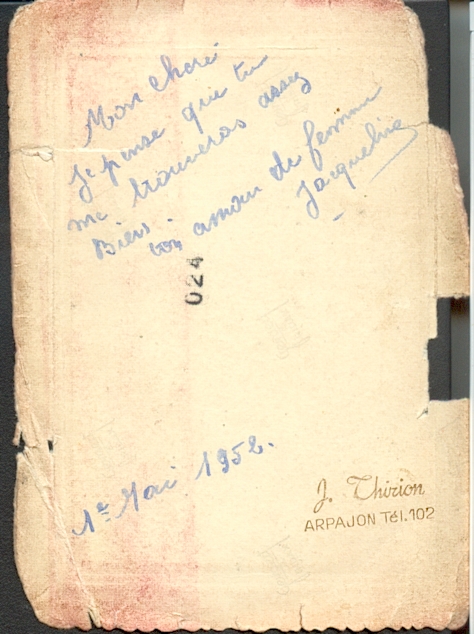 Mon cheri
Je pense que tu
me trouveras assez
Biens.
ton amour de femme
Jacqueline
024
1er Mai 1952.
J. Thirion
ARPAJON Tél.102